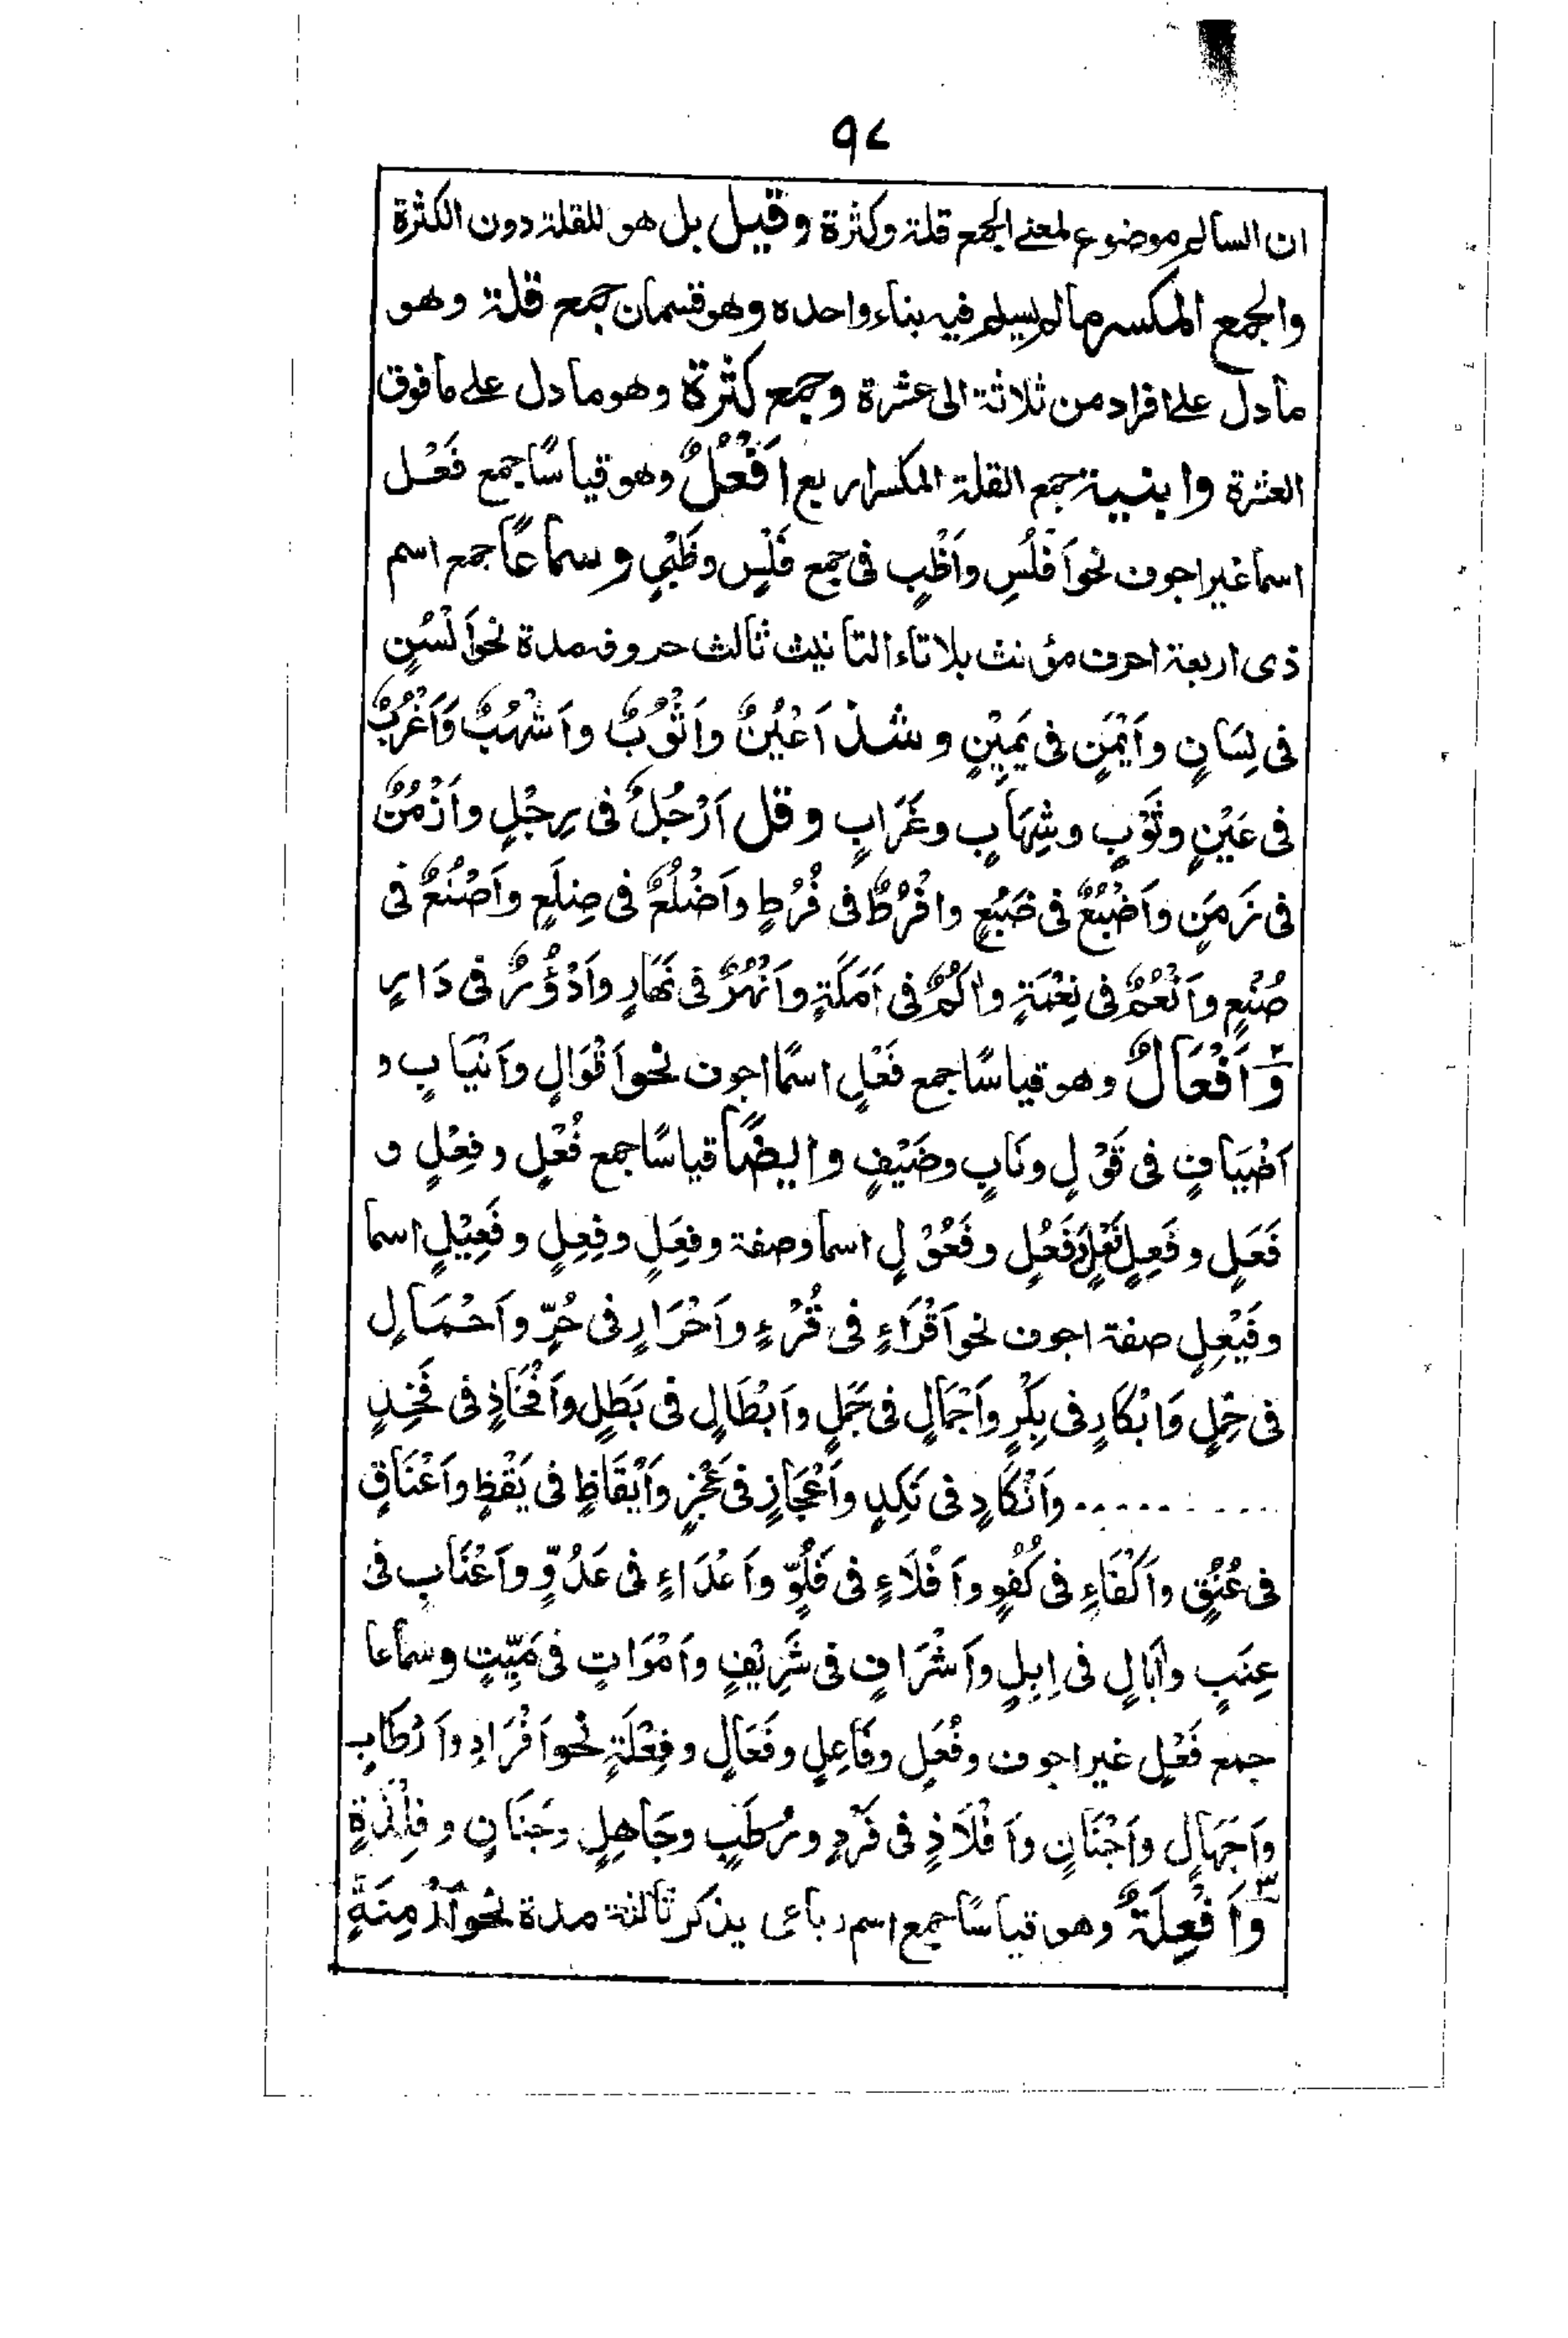 ٩٧
ان السالم موضوع لمعنے الجمع قلة وكثرة وقيل بل هو للقلة دون الكثرة
والجمع المكسر مالم يسلم فيه بناء واحده وهو قسمان جمع قلة وهو
مادل على افراد من ثلاثة الى عشرة وجمع كثرة وهو مادل على مافوق
العشرة وابنية جمع القلة المكسر اربع اَفْعُلٌ وهو قياسًا جمع فَعْل
اسما غير اجوف نحو اَفْلُسٍ واَظْبٍ فى جمع فَلْسٍ وظَبْيٍ وسماعًا جمع اسم
ذى اربعة احرف مؤنث بلا تاء التانيث ثالث حروفه مدة نحو اَلْسُنٍ
فى لِسَانٍ واَيْمَنٍ فى يَمِيْنٍ وشذ اَعْيُنٌ واَثْوُبٌ واَشْهُبٌ وَاَغْرُبٌ
فى عَيْنٍ وثَوْبٍ وشِهَابٍ وغَرَابٍ وقل اَرْجُلٌ فى رِجْلٍ واَزْمُنٌ
فى زَمَنٍ واَضْبُعٌ فى ضَبُعٍ وافْرُطٌ فى فُرُطٍ واَضْلُعٌ فى ضِلَعٍ واَصْنُعٌ فى
صُنْعٍ واَنْعُمٌ فى نِعْمَةٍ واٰكُمٌ فى اَمَكَةٍ واَنْهُرٌ فى نَهَارٍ واَدْؤُرٌ فى دَارٍ
٢ وَاَفْعَالٌ وهو قياسًا جمع فَعْلٍ اسمًا اجوف نحو اَقْوَالٍ واَنْيَابٍ و
اَضْيَافٍ فى قَوْلٍ ونَابٍ وضَيْفٍ وايضًا قياسًا جمع فُعْلٍ وفِعْلٍ و
فَعَلٍ وفَعِلٍ فَعْلٍ وَفَعُلٍ وفَعُوْلٍ اسما وصفة وفِعَلٍ وفِعِلٍ وفَعِيْلٍ اسما
وفَيْعِلٍ صفة اجوف نحو اَقْرَاءٍ فى قُرْءٍ واَحْرَارٍ فى حُرٍّ واَحْمَالٍ
فى حِمْلٍ وَابْكَارٍ فى بِكْرٍ واَجْمَالٍ فى جَمَلٍ واَبْطَالٍ فى بَطَلٍ واَفْخَاذٍ فى فَخِذٍ
........... واَنْكَادٍ فى نَكِدٍ واَعْجَازٍ فى عَجْزٍ واَيْقَاظٍ فى يَقْظٍ واَعْنَاقٍ
فى عُنُقٍ واَكْفَاءٍ فى كُفُوٍ واَفْلَاءٍ فى فَلُوٍّ واَعْدَاءٍ فى عَدُوٍّ واَعْنَابٍ فى
عِنَبٍ واٰبَالٍ فى اِبِلٍ واَشْرَافٍ فى شَرِيْفٍ واَمْوَاتٍ فى مَيِّتٍ وسماعا
جمع فَعْلٍ غير اجوف وفُعَلٍ وفَاعِلٍ وفَعَالٍ وفِعْلَةٍ نحو اَفْرَادٍ واَرْطَابٍ
واَجَهَالٍ واَجْنَانٍ واَفْلَاذٍ فى فَرْدٍ ورُطَبٍ وجَاهِلٍ وجَنَانٍ وفِلْذَةٍ
٣ وَاَفْعِلَةٌ وهو قياسًا جمع اسم رباعى يذكر ثالثة مدة نحو اَزْمِنَةٍ